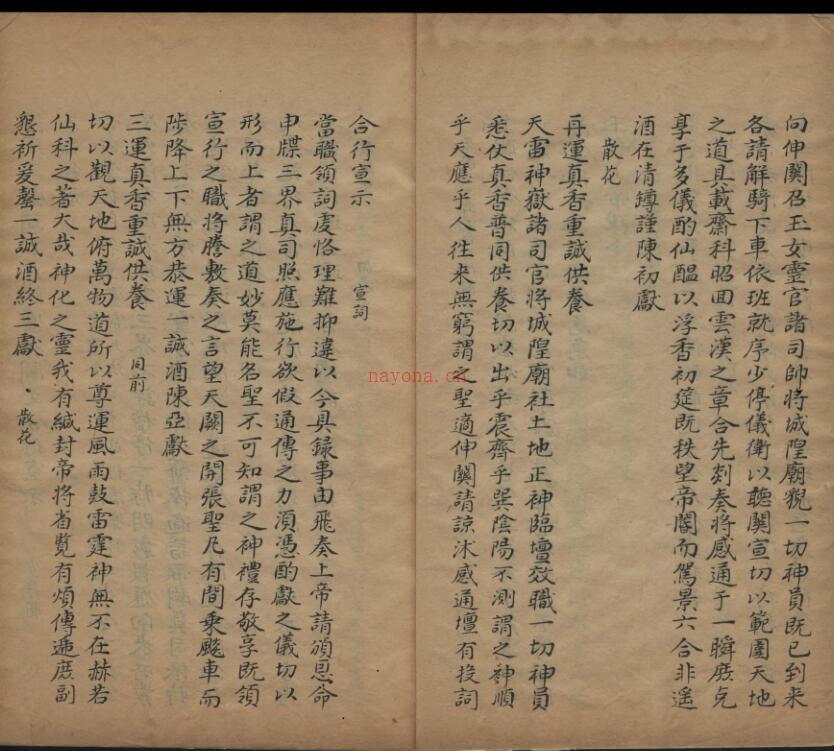 向伸關召玉女靈官諸司帥將城隍廟貌一切神員既已到来
各請解騎下車依班就序少停儀衛以聽關宣切以範圍天地
之道具載齋科昭回雲漢之章合先剡奏將感通于一瞬庶克
享于多儀酌仙醖以浮香初筵既秩望帝閽而駕景六合非遥
酒在清罇謹陳初獻
散花
再運真香重誠供養
天雷神嶽諸司官將城隍廟社土地正神臨壇效職一切神員
悉仗真香普同供養切以出乎震齊乎巽陰陽不測謂之神順
乎天應乎人往来無窮謂之聖適伸關請諒沐感通壇有投詞
合行宣示 宣詞
當職領詞虔恪理難抑違以今具録事由飛奏上帝請頒恩命
申牒三界真司照應施行欲假通傳之力湏憑酌獻之儀切以
形而上者謂之道妙莫能名聖不可知謂之神禮存敬享既領
宣行之職將謄敷奏之言望天闕之開張聖凡有間乗飈車而
陟降上下無方恭運一誠酒陳亞獻
三運真香重誠供養 同前
切以觀天地俯萬物道所以尊運風雨鼓雷霆神無不在赫若
仙科之著大哉神化之靈我有緘封帝將省覽有煩傳遞庶副
懇祈爰罄一誠酒終三獻 · 散花
nayona.cn